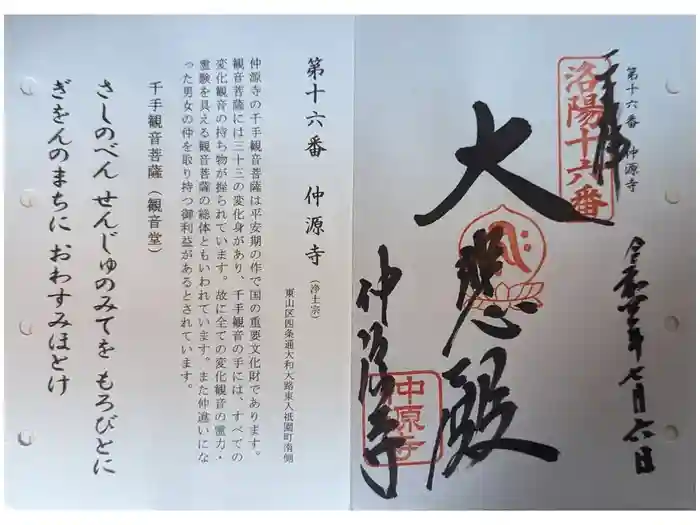 第十六番　仲源寺
洛陽十六番
大悲殿
仲源寺
中原寺
七月六日
第十六番　仲源寺（浄土宗）
東山区四条通大和大路東入祇園町南側
仲源寺の千手観音菩薩は平安期の作で国の重要文化財であります。
観音菩薩には三十三の変化身があり、千手観音の手には、すべての
変化観音の持ち物が握られています。故に全ての変化観音の霊力・
霊験を具える観音菩薩の総体ともいわれています。また仲違いにな
った男女の仲を取り持つ御利益があるとされています。
千手観音菩薩（観音堂）
さしのべん　せんじゅのみてを　もろびとに
ぎをんのまちに　おわすみほとけ